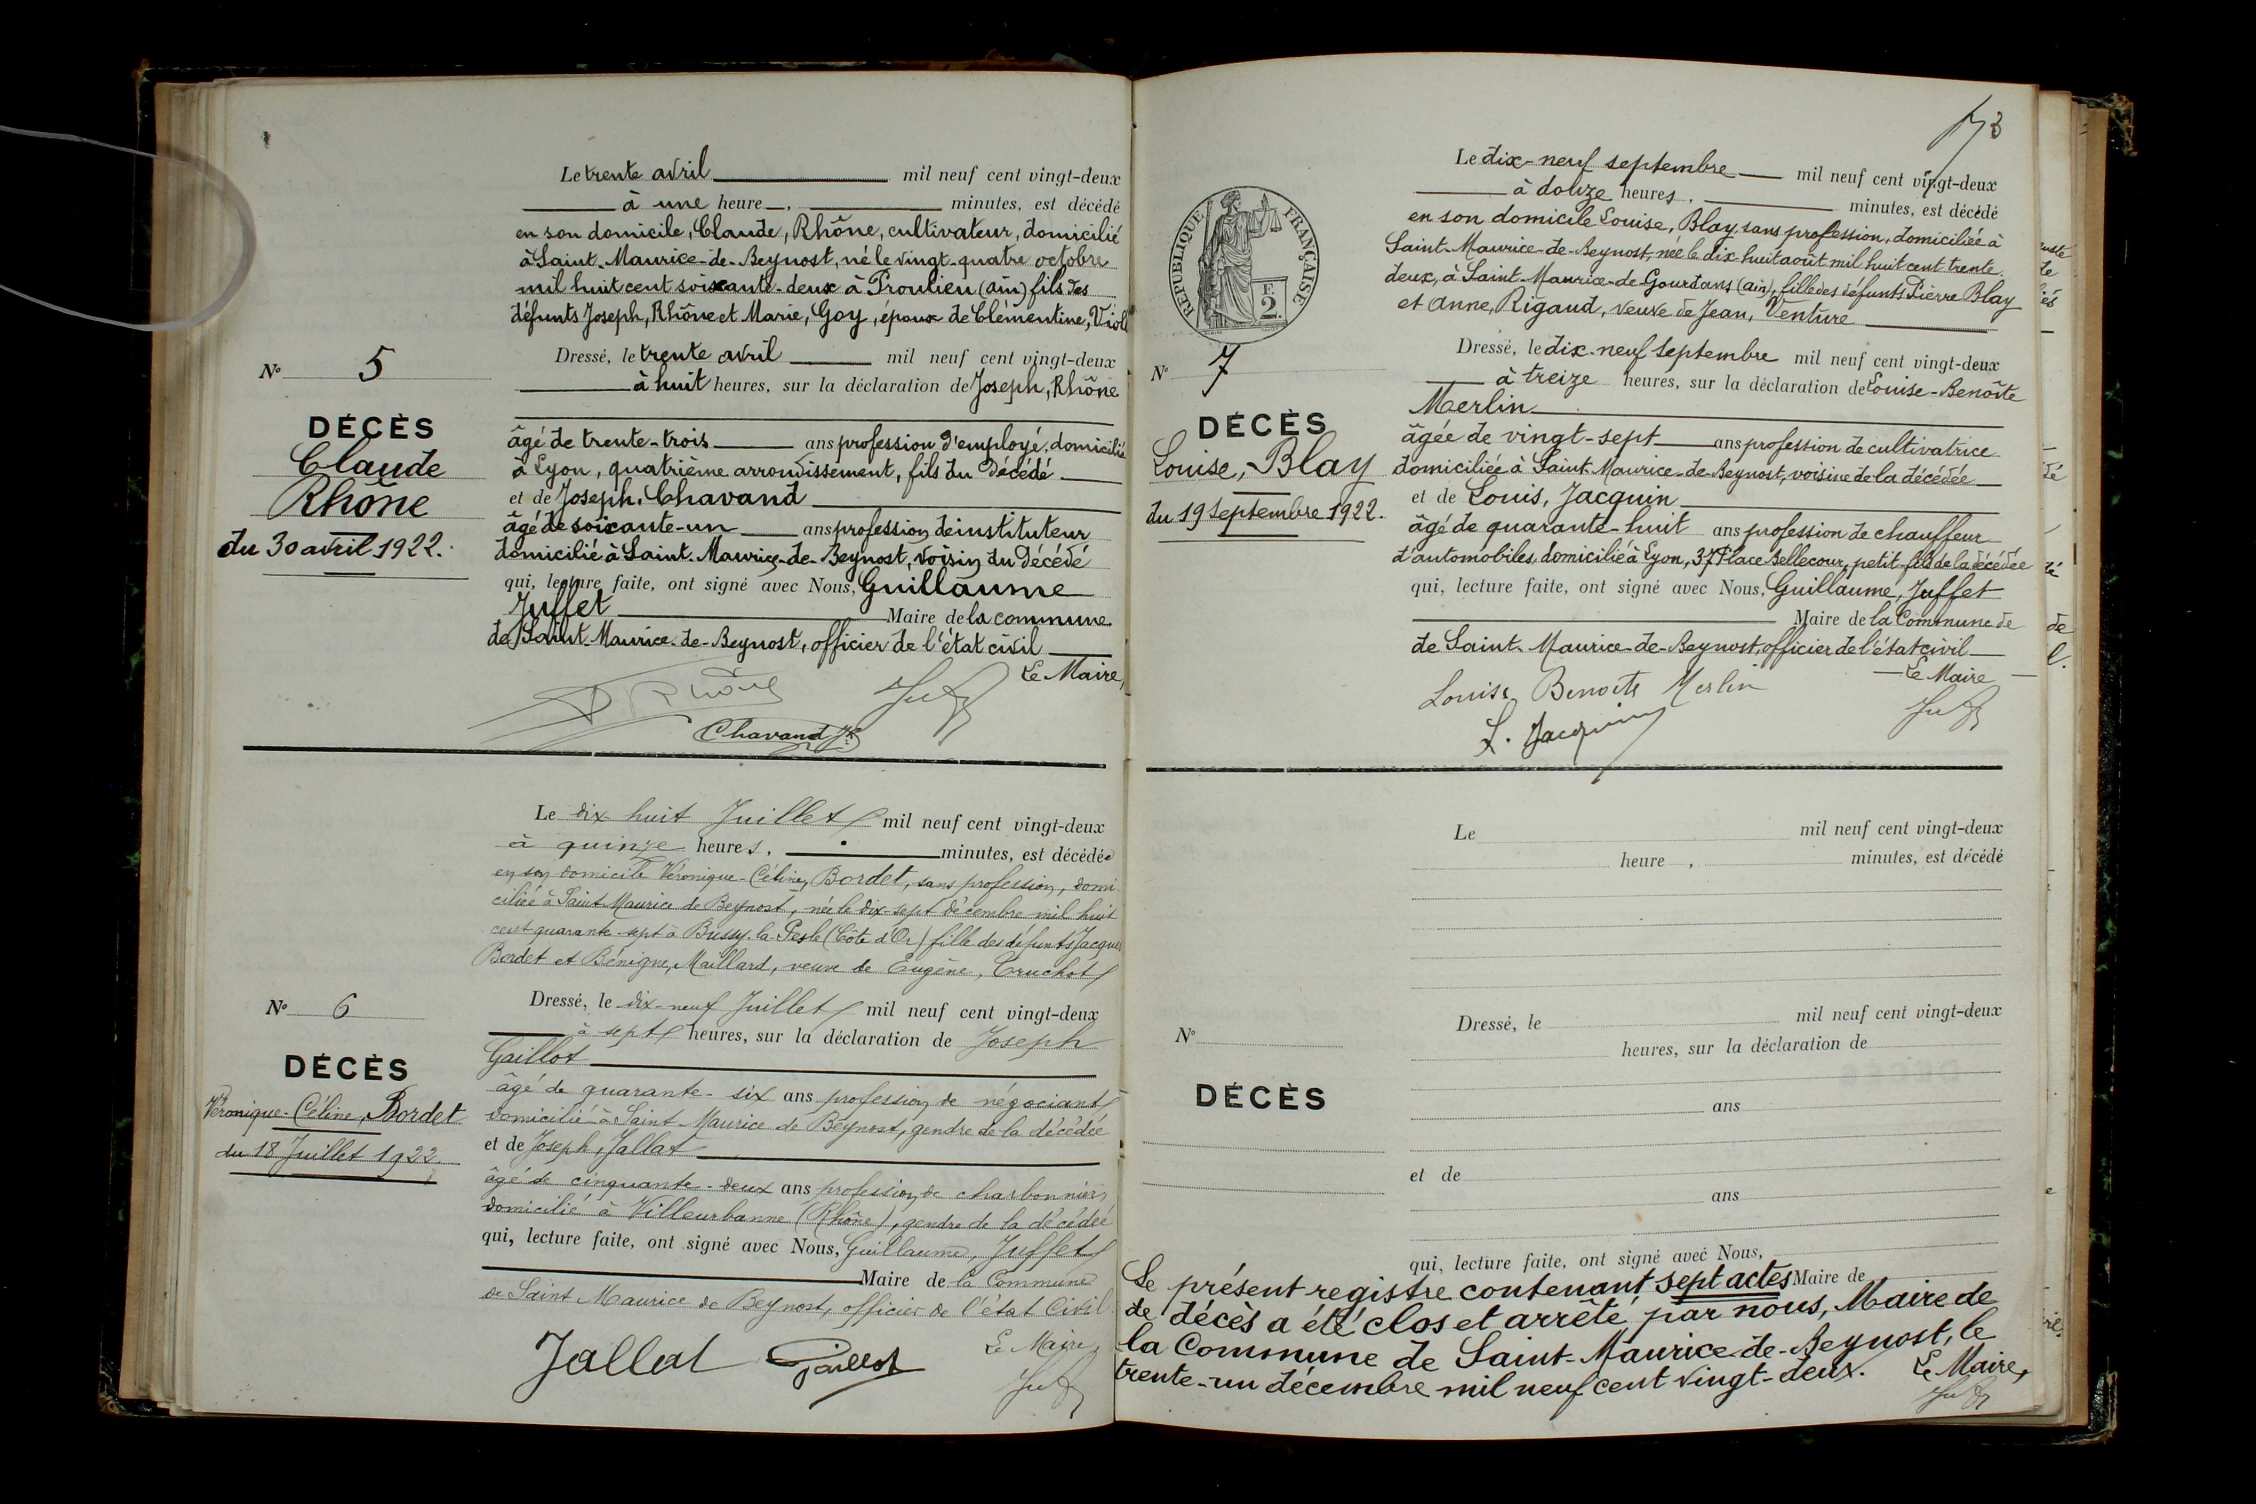 Le trente avril mil neuf cent vingt-deux
à une heure, minutes, est décédé
en son domicile, Claude, Rhône, cultivateur, domicilié
à Saint-Maurice-de-Beynost, né le vingt-quatre octobre
mil huit cent soixante-deux à Proulieu (ain) fils des
défunts Joseph, Rhône et Marie, Goy, époux de Clémentine, Violl
Nº 5
Dressé, le trente avril mil neuf cent vingt-deux
à huit heures, sur la déclaration de Joseph, Rhône
DÉCÈS
Claude
Rhône
du 30 avril 1922.
âgé de trente-trois ans profession d'employé, domicilié
à Lyon, quatrième arrondissement, fils du décédé
et de Joseph, Chavand
âgé de soixante-un ans profession de instituteur
domicilié à Saint-Maurice-de-Beynost, voisin du décédé
qui, lecture faite, ont signé avec Nous, Guillaume
Juffet Maire de la commune
de Saint-Maurice-de-Beynost, officier de l'état civil
Le Maire,
Rhône
Chavand Jh
Le dix huit Juillet mil neuf cent vingt-deux
à quinze heures, minutes, est décédée
en son domicile Véronique-Céline, Bordet, sans profession, domi-
ciliée à Saint Maurice de Beynost, née le dix-sept décembre mil huit
cent quarante-sept à Bussy-la-Pesle (Côte d'Or) fille des défunts Jacques
Bordet et Bénigne, Maillard, veuve de Eugène, Truchot
Nº 6
Dressé, le dix-neuf Juillet mil neuf cent vingt-deux
à sept heures, sur la déclaration de Joseph
Gaillot
DÉCÈS
Véronique-Céline, Bordet
du 18 Juillet 1922.
âgé de quarante-six ans profession de négociant
domicilié à Saint-Maurice de Beynost, gendre de la décédée
et de Joseph, Jallat
âgé de cinquante-deux ans profession de charbonnier
domicilié à Villeurbanne (Rhône), gendre de la décédée
qui, lecture faite, ont signé avec Nous, Guillaume, Juffet
Maire de la Commune
de Saint Maurice de Beynost, officier de l'état Civil
Le Maire,
Jallat Gaillot
RÉPUBLIQUE FRANÇAISE
F.
2.
Le dix-neuf septembre mil neuf cent vingt-deux
à douze heures, minutes, est décédé
en son domicile Louise, Blay, sans profession, domiciliée à
Saint-Maurice-de-Beynost, née le dix huit août mil huit cent trente
deux, à Saint-Maurice-de-Gourdans (ain), fille des défunts Pierre Blay
et Anne, Rigaud, veuve de Jean, Venture
Nº 7
Dressé, le dix-neuf septembre mil neuf cent vingt-deux
à treize heures, sur la déclaration de Louise-Benoîte
Merlin
DÉCÈS
Louise, Blay
du 19 septembre 1922.
âgée de vingt-sept ans profession de cultivatrice
domiciliée à Saint-Maurice-de-Beynost, voisine de la décédée
et de Louis, Jacquin
âgé de quarante-huit ans profession de chauffeur
d'automobiles, domicilié à Lyon, 37 Place Bellecour, petit-fils de la décédée
qui, lecture faite, ont signé avec Nous, Guillaume, Juffet
Maire de la Commune de
de Saint-Maurice-de-Beynost, officier de l'état civil
Le Maire
Louise Benoîte Merlin
L. Jacquin
Le mil neuf cent vingt-deux
heure, minutes, est décédé
Nº
Dressé, le mil neuf cent vingt-deux
heures, sur la déclaration de
DÉCÈS
ans
et de
ans
qui, lecture faite, ont signé avec Nous,
Maire de
Le présent registre contenant sept actes
de décès a été clos et arrêté par nous, Maire de
la Commune de Saint-Maurice-de-Beynost, le
trente-un décembre mil neuf cent vingt-deux.
Le Maire,